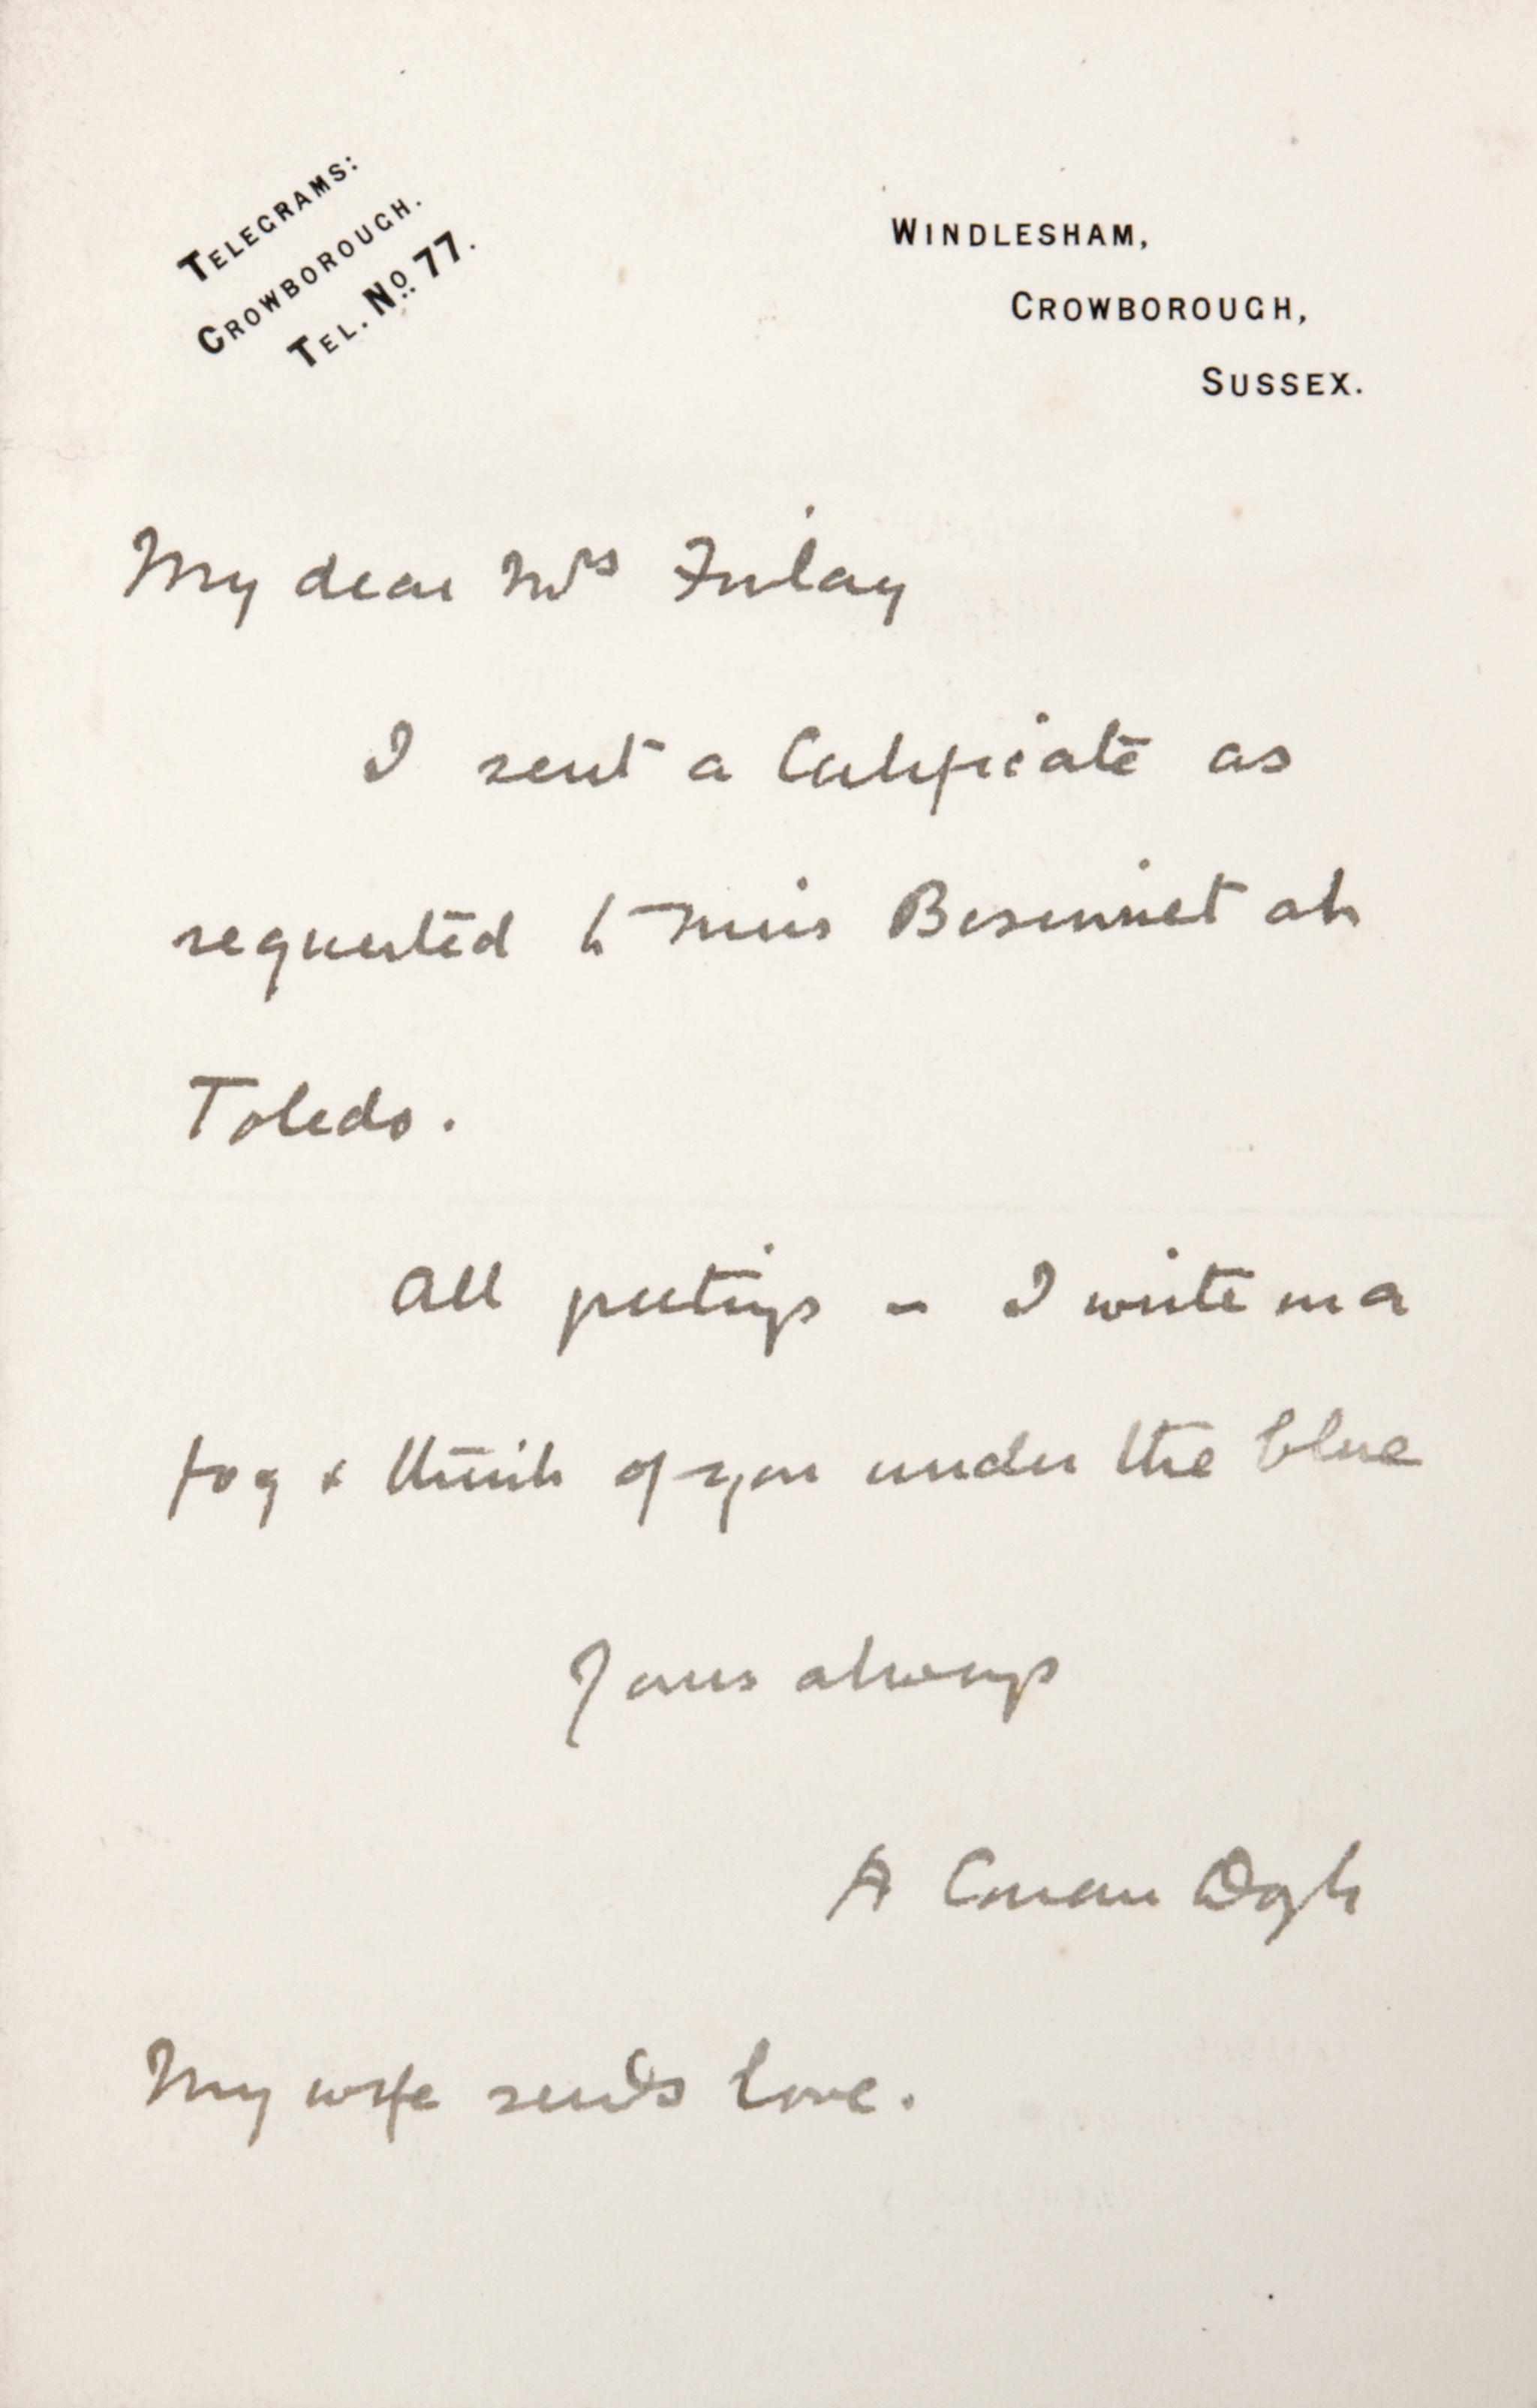 TELEGRAMS:
CROWBOROUGH.
TEL. No 77.
WINDLESHAM,
CROWBOROUGH,
SUSSEX.
My dear Mrs Finlay
I sent a Certificate as
requested to Miss Besinnet at
Toledo.
All greetings - I write in a
fog & think of you under the blue
Yours always
A Conan Doyle
My wife sends love.